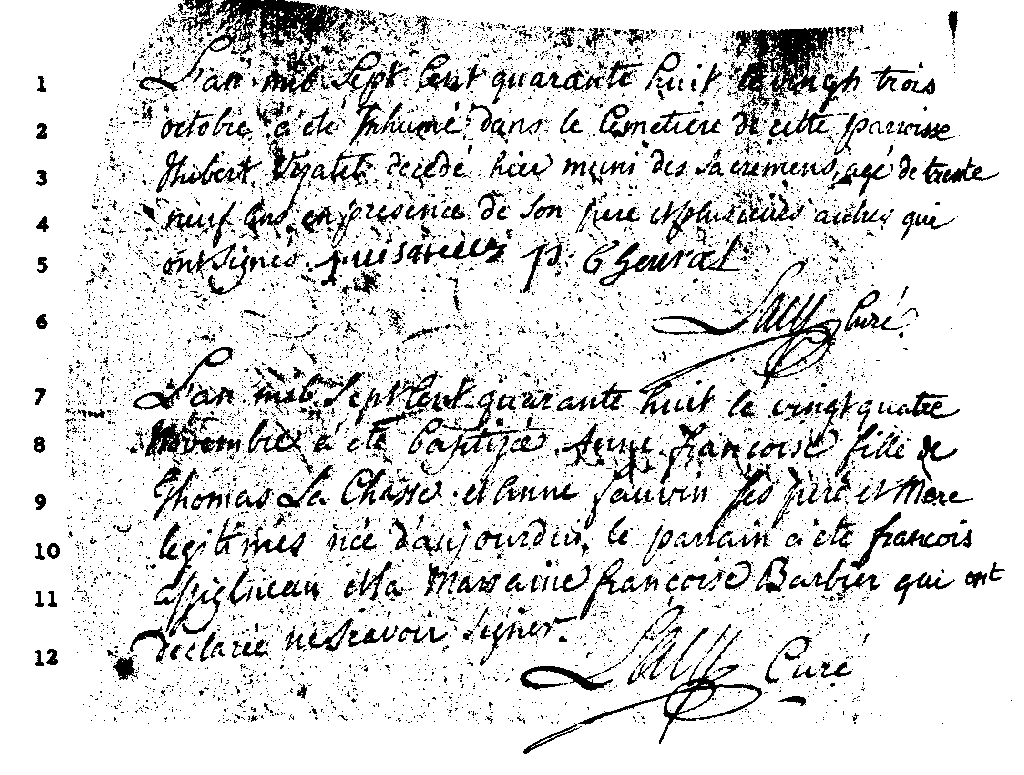 1 L'an mil Sept Cent quarante huit le vingt trois
2 octobre a été Inhumé dans le Cemetiere de cette parroisse
3 Hubert decedé hier muni des Sacremens, agé de trente
4 neuf ans, en presence de Son pere et plusieurs autres qui
5 ont Signés. p.
6 Curé
7 L'an mil Sept Cent quarante huit le vingt quatre
8 Novembre a été baptizée Anne françoise fille de
9 Thomas La Chasse et anne Jauvin Ses pere et Mere
10 legitimes née d'aujourduy, le parrain a été francois
11 et la Marraine françoise Barbier qui ont
12 declarée ne Scavoir Signer.
Curé